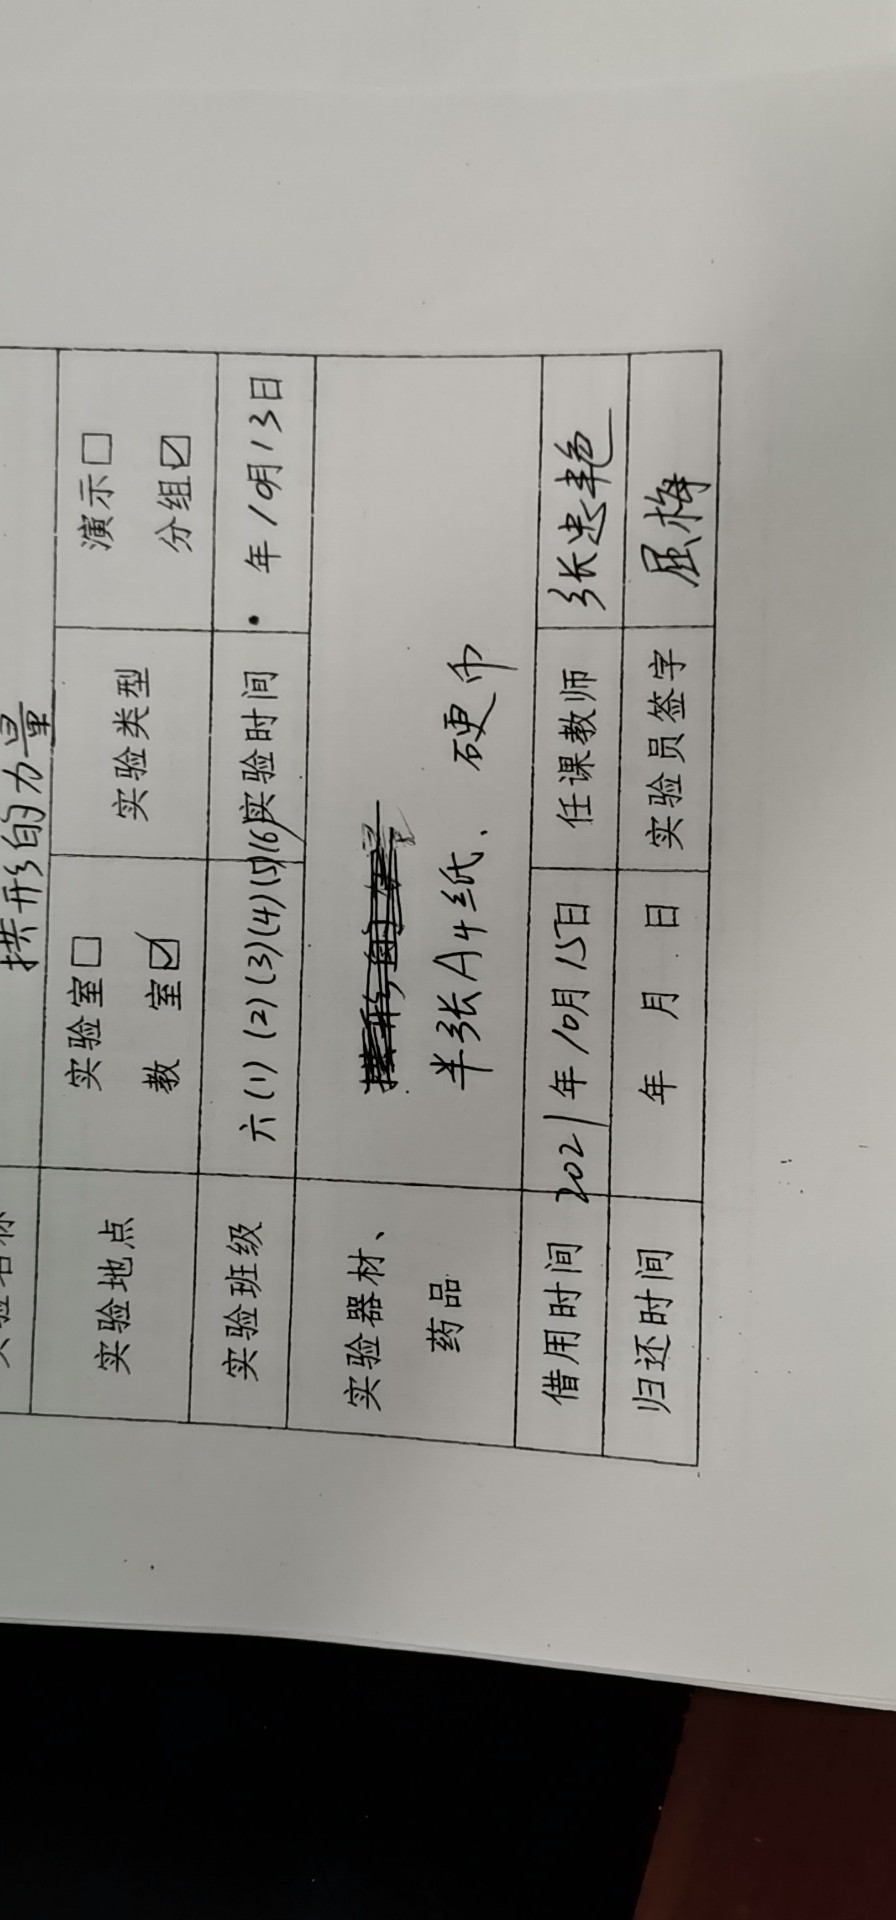 拱形的力量
实验地点 实验室□ 实验类型 演示□
教 室☑ 分组☑
实验班级 六(1)(2)(3)(4)(5)(6) 实验时间 年10月13日
实验器材、
药品
半张A4纸、硬币
借用时间 2021年10月15日 任课教师 张忠艳
归还时间 年 月 日 实验员签字 屈梅